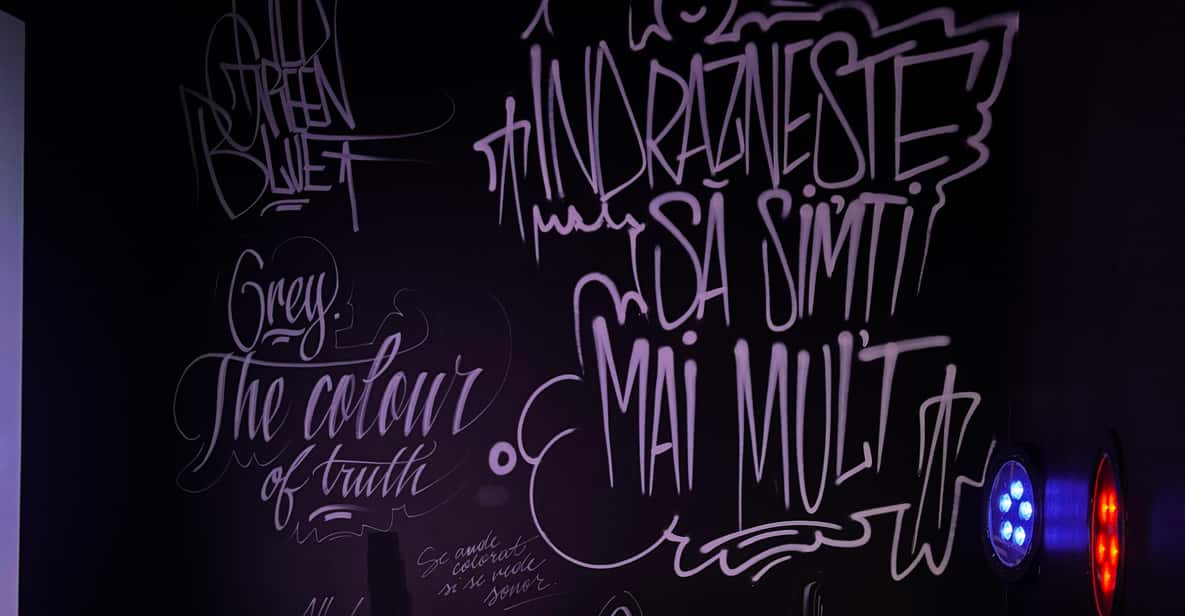 GREEN
BLUE
Grey.
The colour
of truth
Se aude
colorat
si se vede
sonor.
INDRAZNESTE
SĂ SIMTI
MAI MULT